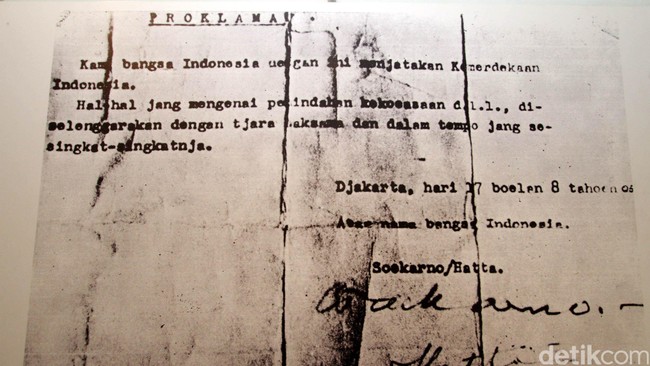 P R O K L A M A S I .
Kami bangsa Indonesia dengan ini menjatakan Kemerdekaan
Indonesia.
Hal-hal jang mengenai pemindahan kekoeasaan d.l.l., di-
selenggarakan dengan tjara saksama dan dalam tempo jang se-
singkat-singkatnja.
Djakarta, hari 17 boelan 8 tahoen 05
Atas nama bangsa Indonesia.
Soekarno/Hatta.
Soekarno.-
Hatta
detikcom